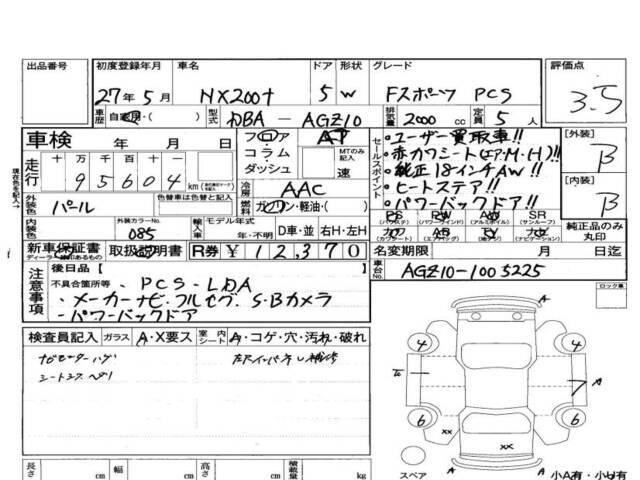 出品番号
初度登録年月 車名 ドア 形状 グレード 評価点
27年5月 NX200t 5 W Fスポーツ PCS 3.5
車歴 自家用・( ) 型式 DBA - AGZ10 排気量 2000 cc 定員 5 人
車検 年 月 日
フロア AT
コラム MTのみ記入
ダッシュ 速
セールスポイント
・ユーザー買取車!!
・赤カワシート(エア・M・H)!!
・純正18インチAW!!
・ヒートステア!!
・パワーバックドア!!
[外装] B
[内装] B
現在色を記入→
走行 十 万 千 百 十
95604 km
冷房 AAC
外装色 パール
色替車は色替と記入
燃料 ガソリン・軽油・( )
PS PW AW SR
(パワステ) (パワーウインド) (アルミホイル) (サンルーフ)
内装色
外装カラーNo. 085
輸入車 モデル年式 年・不明 D車・並 右H・左H
純正品のみ丸印
新車保証書 取扱説明書 R券 ¥12,370
名変期限 月 日迄
車台No. AGZ10-1003225
ロック車
注意事項
後日品 [ ]
不具合箇所等
・PCS・LDA
・メーカーナビ・フルセグ・S・Bカメラ
・パワーバックドア
検査員記入 ガラス A・X要ス 室内シート A・コゲ・穴・汚れ・破れ
シートスレ
A
4 4
A
6 6
XX XX
A
スペア
小A有・小U有
長さ cm 幅 cm 高さ cm 積載量 kg